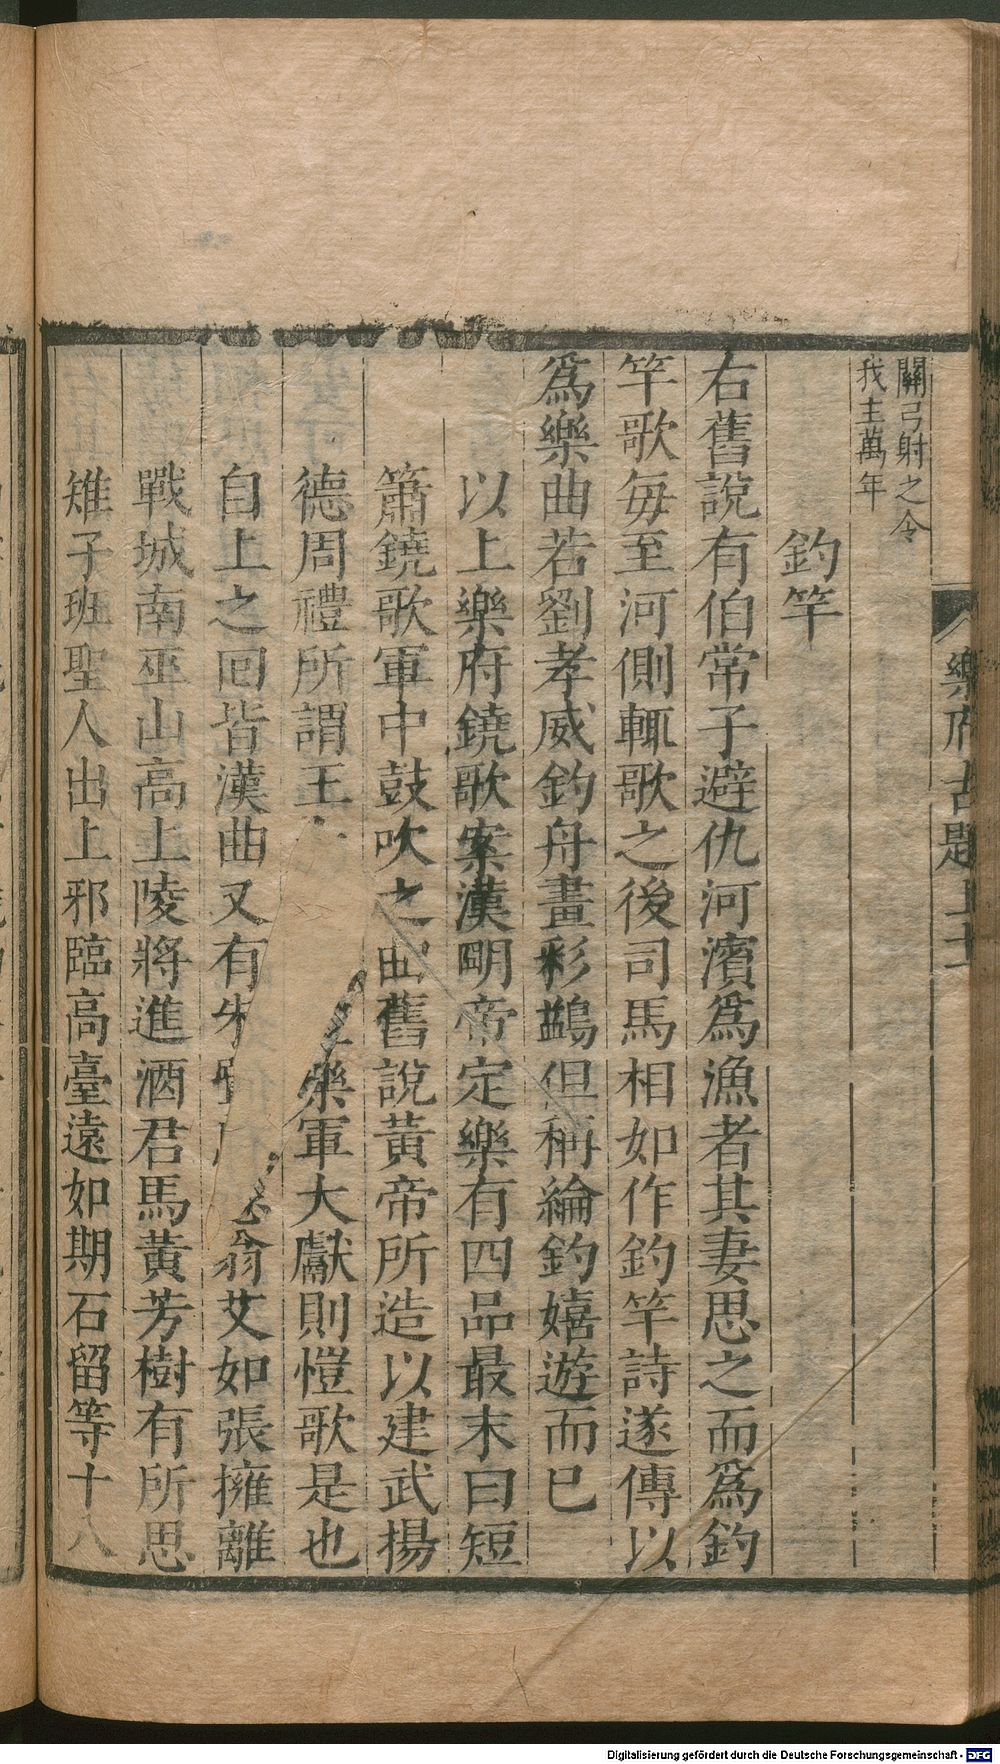 樂府古題上
關弓射之今
我主萬年
釣竿
右舊說有伯常子避仇河濱爲漁者其妻思之而爲釣
竿歌每至河側輒歌之後司馬相如作釣竿詩遂傳以
爲樂曲若劉孝威釣舟畫彩鷁但稱綸釣嬉遊而已
以上樂府鐃歌案漢明帝定樂有四品最末曰短
簫鐃歌軍中鼓吹之曲舊說黃帝所造以建武揚
德周禮所謂王樂軍大獻則愷歌是也
自上之回皆漢曲又有朱翁艾如張擁離
戰城南巫山高上陵將進酒君馬黃芳樹有所思
雉子班聖人出上邪臨高臺遠如期石留等十八
Digitalisierung gefördert durch die Deutsche Forschungsgemeinschaft - DFG